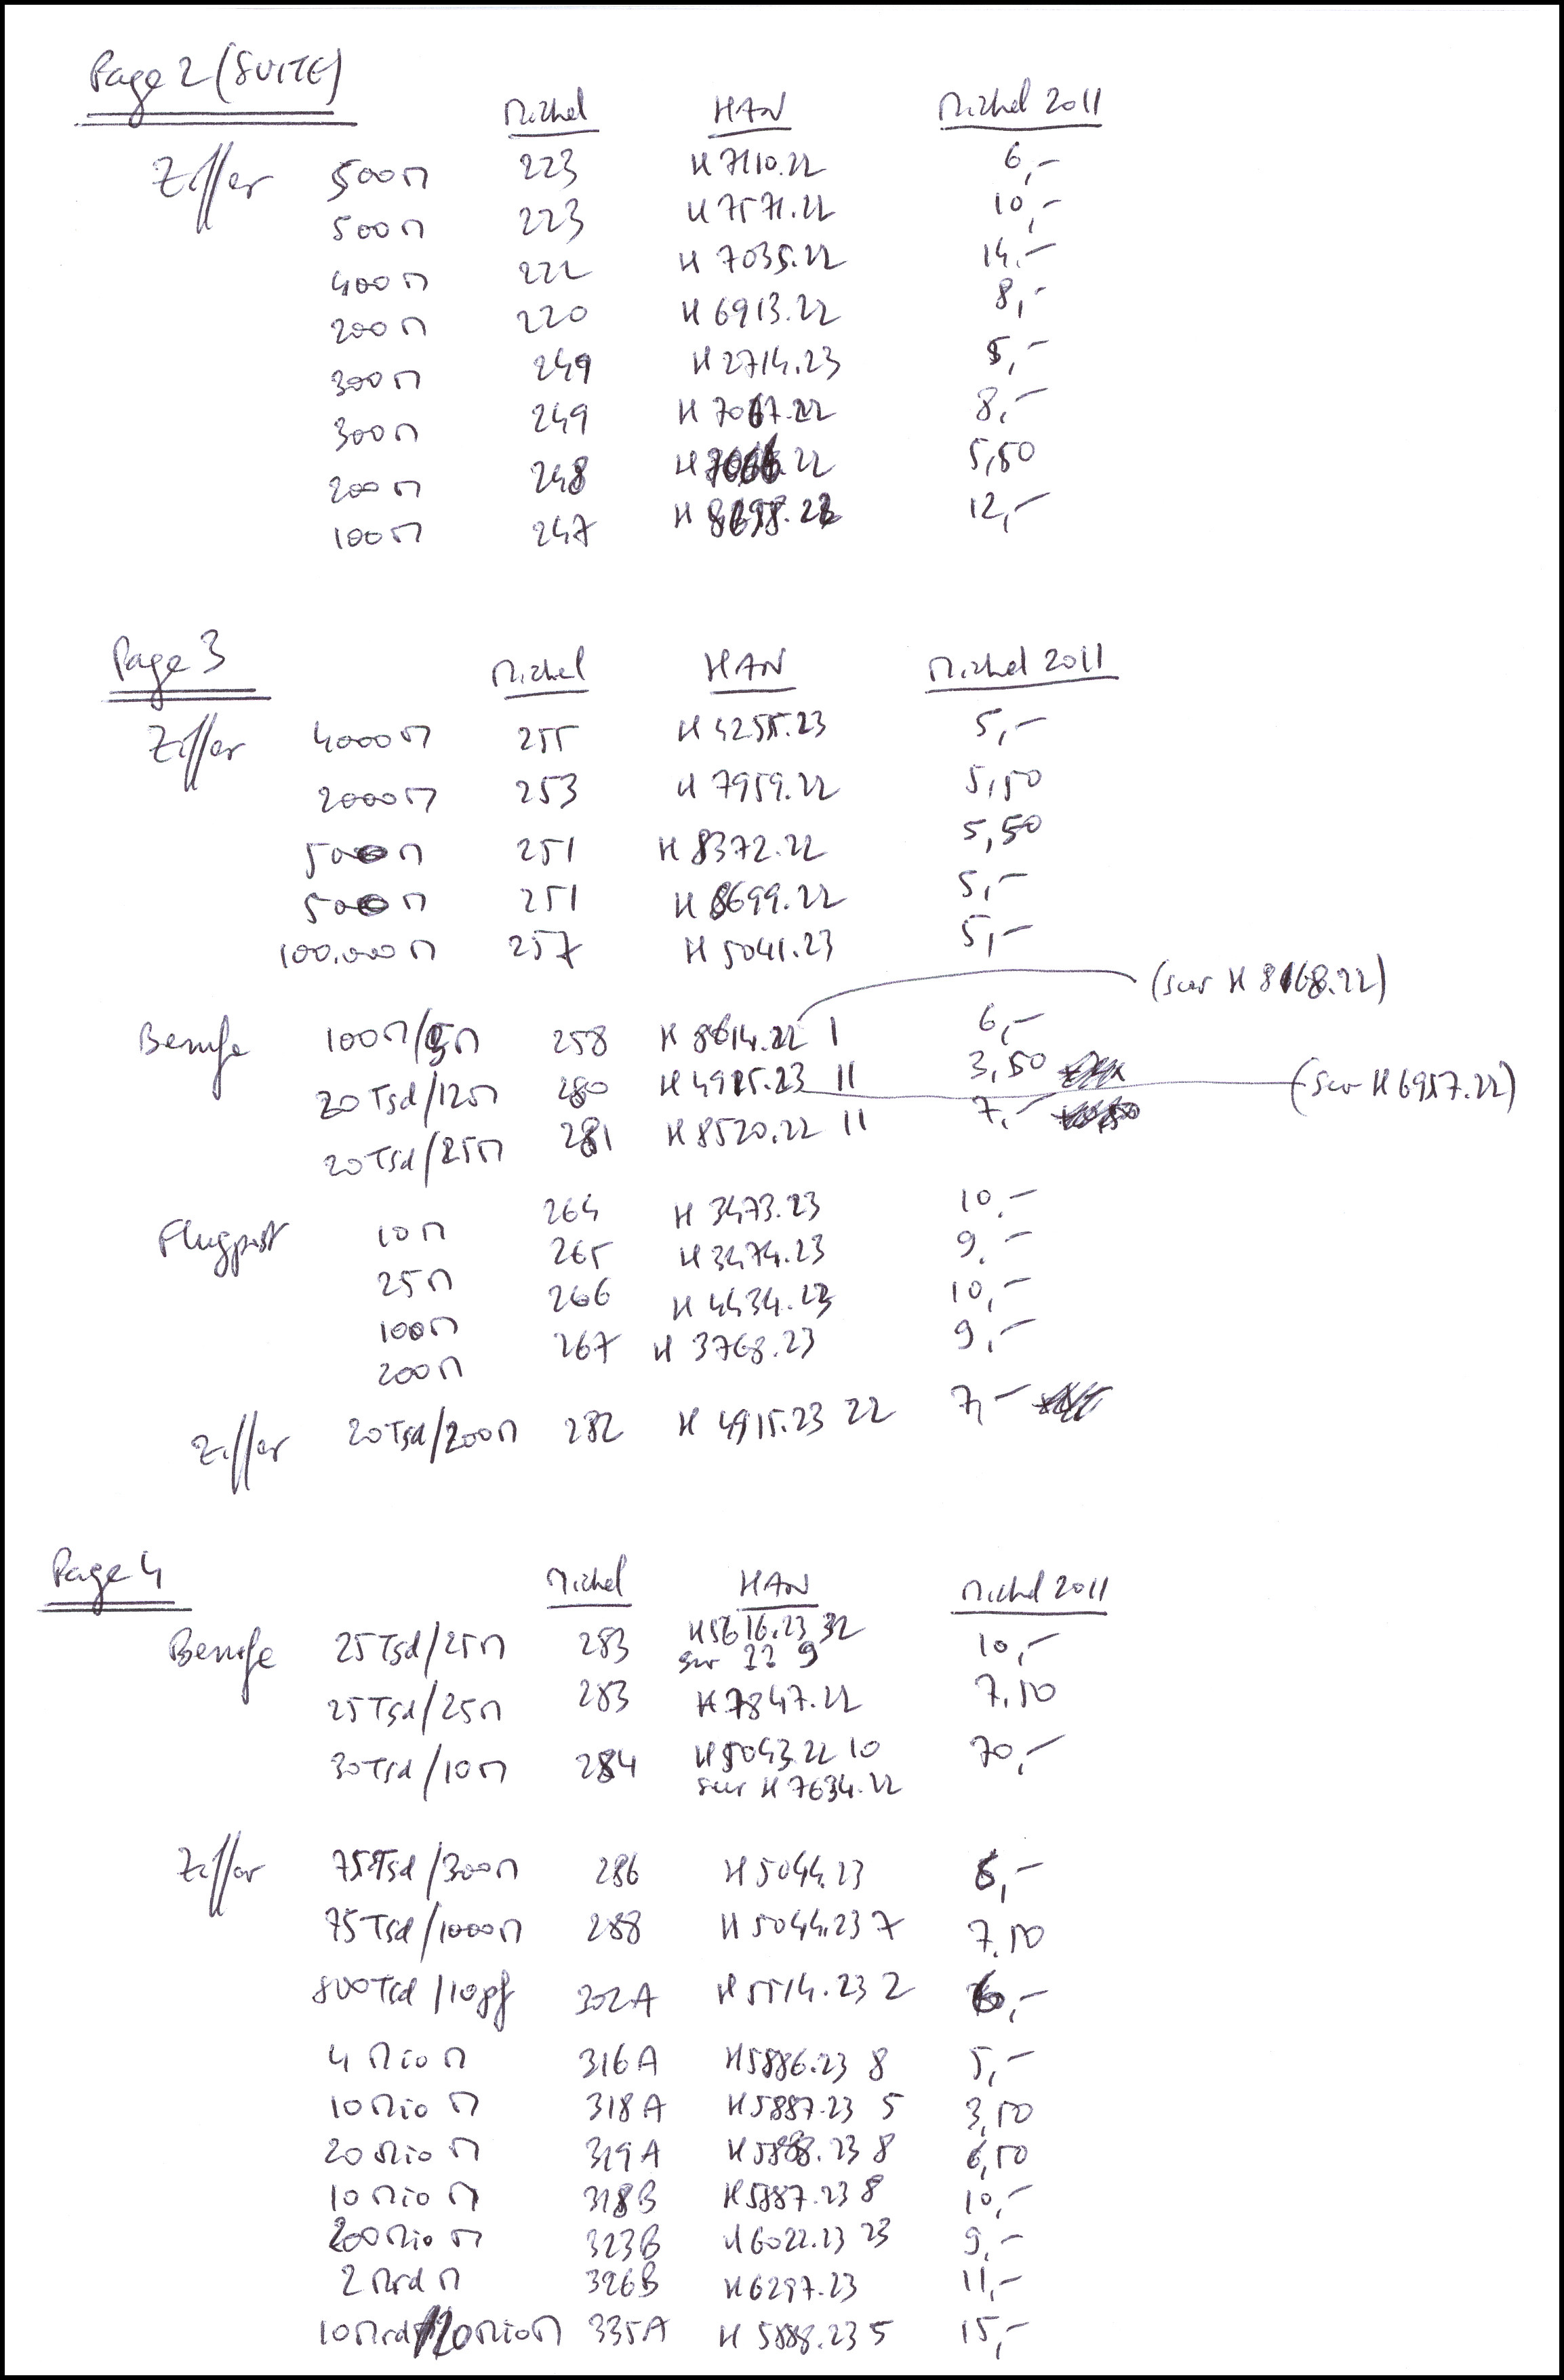 Page 2 (SUITE)
Michel HAN Michel 2011
Ziffer 500M 223 H 7110.22 6,-
500M 223 H 7571.22 10,-
400M 222 H 7035.22 14.-
200M 220 H 6913.22 8,-
300M 249 H 2714.23 5,-
300M 249 H 7067.22 8,-
200M 248 H 7066.22 5,50
100M 247 12,-
Page 3
Michel HAN Michel 2011
Ziffer 4000M 255 H 4255.23 5,-
2000M 253 H 7959.22 5,50
500M 251 H 8372.22 5,50
500M 251 H 8699.22 5,-
100.000M 257 H 5041.23 5,-
(sur H 8168.22)
Berufe 100M/5M 258 H 8614.22 I 6,-
20Tsd/12M 280 H 4915.23 II 3,50
(sur H 6957.22)
20Tsd/25M 281 H 8520.22 II 7,-
Flugpost 10M 264 H 3473.23 10,-
25M 265 H 3474.23 9.-
100M 266 H 4434.23 10,-
200M 267 H 3768.23 9,-
Ziffer 20Tsd/200M 282 H 4915.23 22 7,-
Page 4
Michel HAN Michel 2011
Berufe 25Tsd/25M 283 H5616.23 32 10,-
sur 22 9
25Tsd/25M 283 H7847.22 7,50
30Tsd/10M 284 H5043.22 10 70,-
sur H 7634.22
Ziffer 75Tsd/300M 286 H 5044.23 6,-
75Tsd/1000M 288 H 5044.23 7 7.50
800Tsd/10pf 302A H 5514.23 2 6,-
4 Mio M 316A H5886.23 8 5,-
10 Mio M 318A H5887.23 5 3,50
20 Mio M 319A H5888.23 8 6,50
10 Mio M 318B H5887.23 8 10,-
200 Mio M 323B H6022.23 23 9,-
2 Mrd M 326B H6297.23 11,-
10Mrd/20MioM 335A H 5888.23 5 15,-